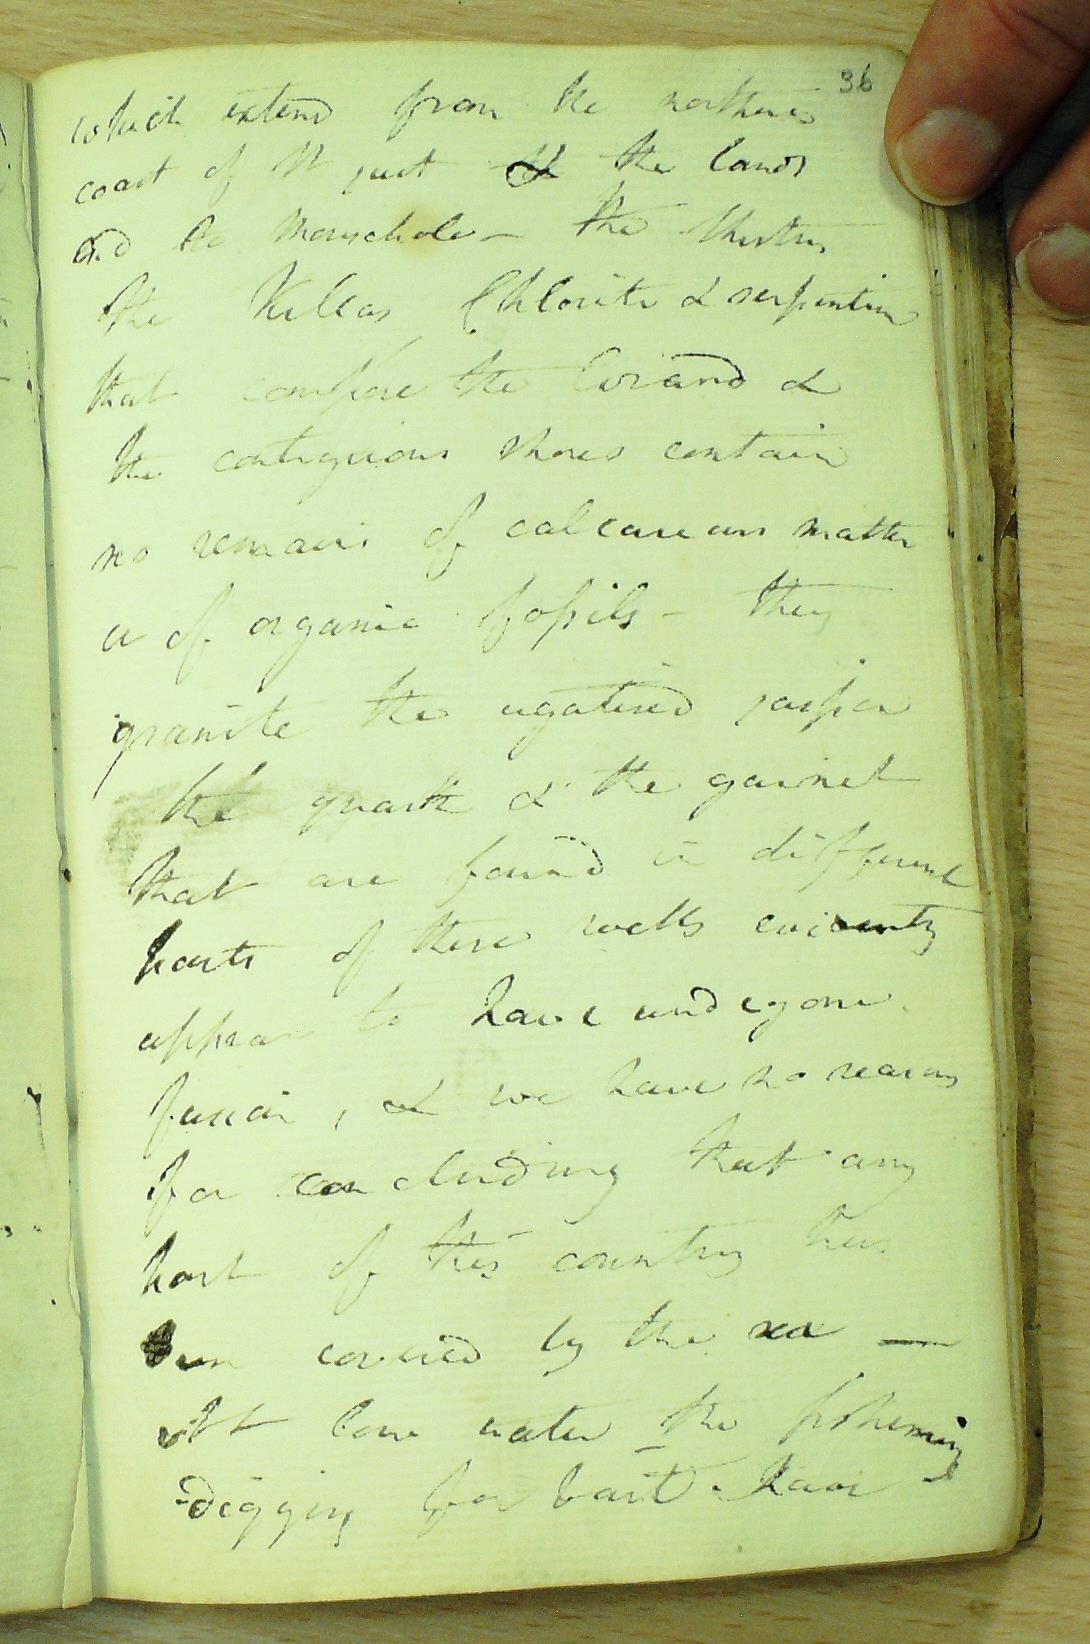 36
which extend from the northern
coast of St just to the lands
End to Mousehole - the Shistus
the Killas Chlorite & serpentine
that compose the Lizard &
the contiguous shores contain
no remains of calcareous matter
or of organic fossils - they
granite the agatised jasper
the quartz & the garnet
that are found in different
parts of these rocks evidently
appear to have undergone
fusion, & we have no reasons
for concluding that any
part of this country has
been covered by the sea —
At low water the fishermen
digging for bait have